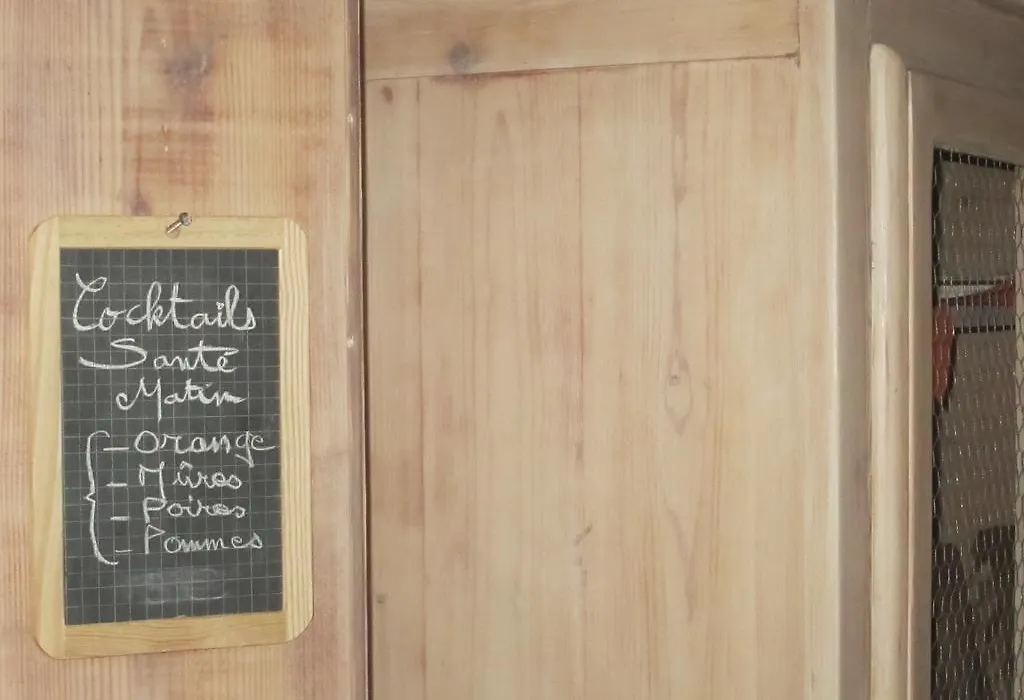 Cocktails
Santé
Matin
- Orange
- Mûres
- Poires
- Pommes